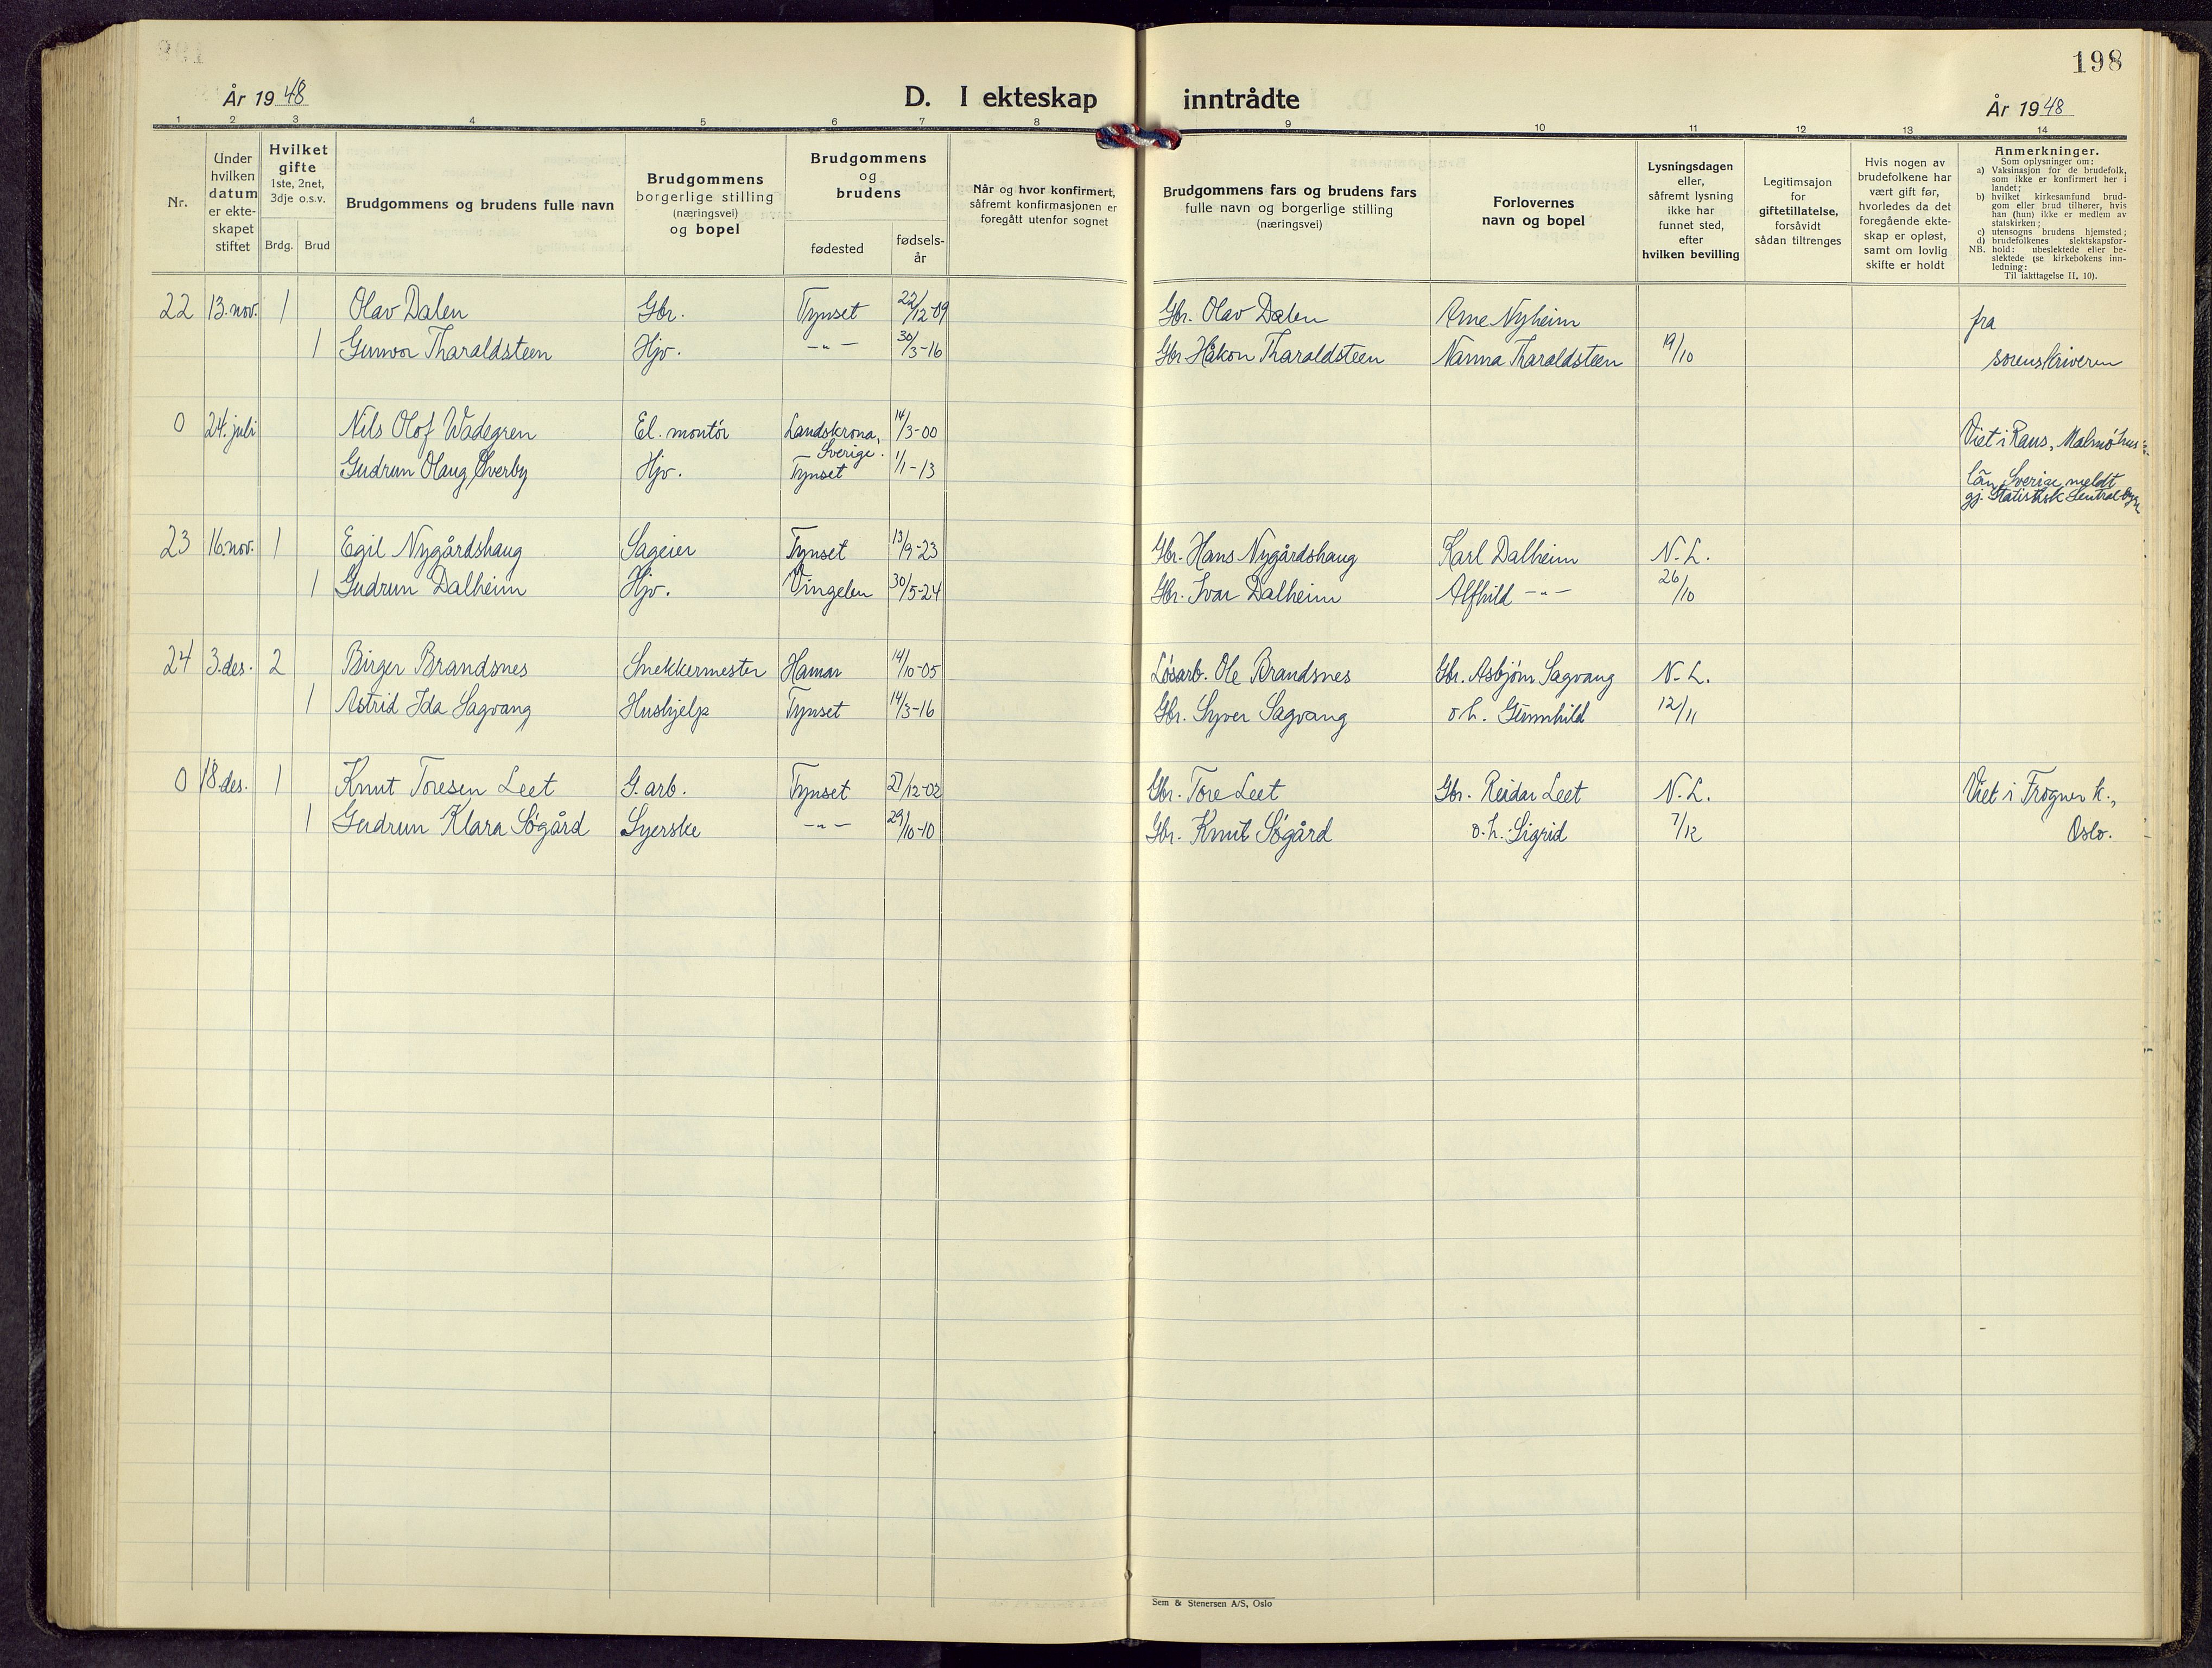 198
År 1948 D. I ekteskap inntrådte År 1948
1 2 3 4 5 6 7 8 9 10 11 12 13 14
Nr.
Under
hvilken
datum
er ekte-
skapet
stiftet
Hvilket
gifte
1ste, 2net,
3dje o.s.v.
Brdg. Brud
Brudgommens og brudens fulle navn
Brudgommens
borgerlige stilling
(næringsvei)
og bopel
Brudgommens
og
brudens
fødested
fødsels-
år
Når og hvor konfirmert,
såfremt konfirmasjonen er
foregått utenfor sognet
Brudgommens fars og brudens fars
fulle navn og borgerlige stilling
(næringsvei)
Forlovernes
navn og bopel
Lysningsdagen
eller,
såfremt lysning
ikke har
funnet sted,
efter
hvilken bevilling
Legitimsajon
for
giftetillatelse,
forsåvidt
sådan tiltrenges
Hvis nogen av
brudefolkene har
vært gift før,
hvorledes da det
foregående ekte-
skap er opløst,
samt om lovlig
skifte er holdt
Anmerkninger.
Som oplysninger om:
a) Vaksinasjon for de brudefolk,
som ikke er konfirmert her i
landet;
b) hvilket kirkesamfund brud-
gom eller brud tilhører, hvis
han (hun) ikke er medlem av
statskirken;
c) utensogns brudens hjemsted;
d) brudefolkenes slektskapsfor-
NB. hold: ubeslektede eller be-
slektede (se kirkebokens inn-
ledning:
Til iakttagelse II, 10).
22 13. nov. 1 Olav Dalen Gbr. Tynset 22/12-09 Gbr. Olav Dalen Arne Nyheim fra
1 Gunvor Tharaldsteen Hjv. -"- 30/3-16 Gbr. Håkon Tharaldsteen Nanna Tharaldsteen 19/10 sorenskriveren
0 24. juli Nils Olof Wadegren El. montör Landskrona, Sverige. 14/3-00 Viet i Raus, Malmöhus
Gudrun Olaug Øverby Hjv. Tynset 1/1-13 län Sverige meldt
gj. Statistisk Sentralbyrå
23 16. nov. 1 Egil Nygårdshaug Sageier Tynset 13/9-23 Gbr. Hans Nygårdshaug Karl Dalheim N.L.
1 Gudrun Dalheim Hjv. Vingelen 30/5-24 Gbr. Ivar Dalheim Alfhild -"- 26/10
24 3. des. 2 Birger Brandsnes Snekkermester Hamar 14/10-05 Løsarb. Ole Brandsnes Gbr. Asbjørn Sagvang N.L.
1 Astrid Ida Sagvang Hushjelp Tynset 14/3-16 Gbr. Syver Sagvang o.h. Gunnhild 12/11
0 18 des. 1 Knut Toresen Leet G.arb. Tynset 27/12-02 Gbr. Tore Leet Gbr. Reidar Leet N.L. Viet i Frogner k.,
1 Gudrun Klara Søgård Syerske -"- 29/10-10 Gbr. Knut Søgård o.h. Sigrid 7/12 Oslo.
Sem & Stenersen A/S, Oslo